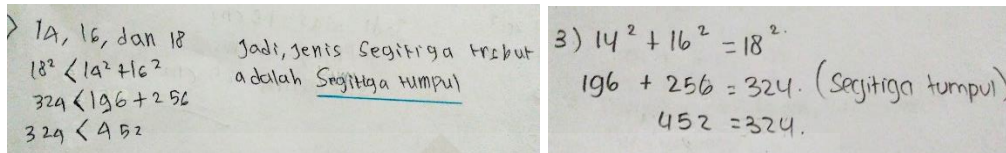 ) 14, 16, dan 18
18² < 14² + 16²
324 < 196 + 256
324 < 452
Jadi, jenis segitiga trsbut
adalah Segitiga tumpul
3) 14² + 16² = 18².
196 + 256 = 324. (Segitiga tumpul)
452 = 324.